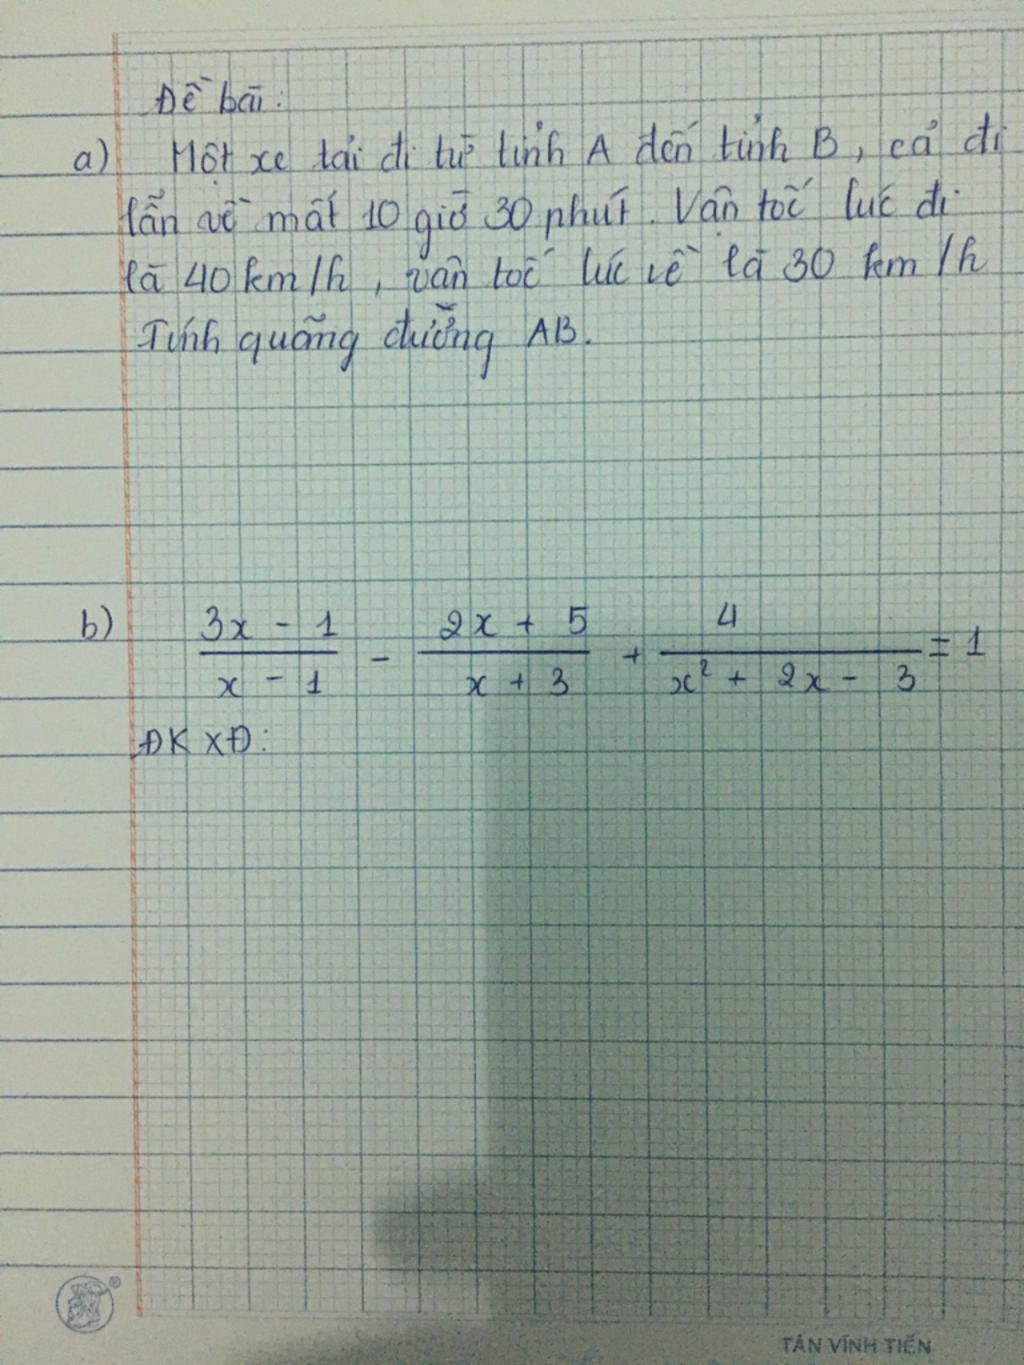 Đề bài:
a) Một xe tải đi từ tỉnh A đến tỉnh B, cả đi
lẫn về mất 10 giờ 30 phút. Vận tốc lúc đi
là 40 km/h, vận tốc lúc về là 30 km/h
Tính quãng đường AB.
b) \frac{3x - 1}{x - 1} - \frac{2x + 5}{x + 3} + \frac{4}{x² + 2x - 3} = 1
ĐKXĐ:
®
TÂN VĨNH TIẾN